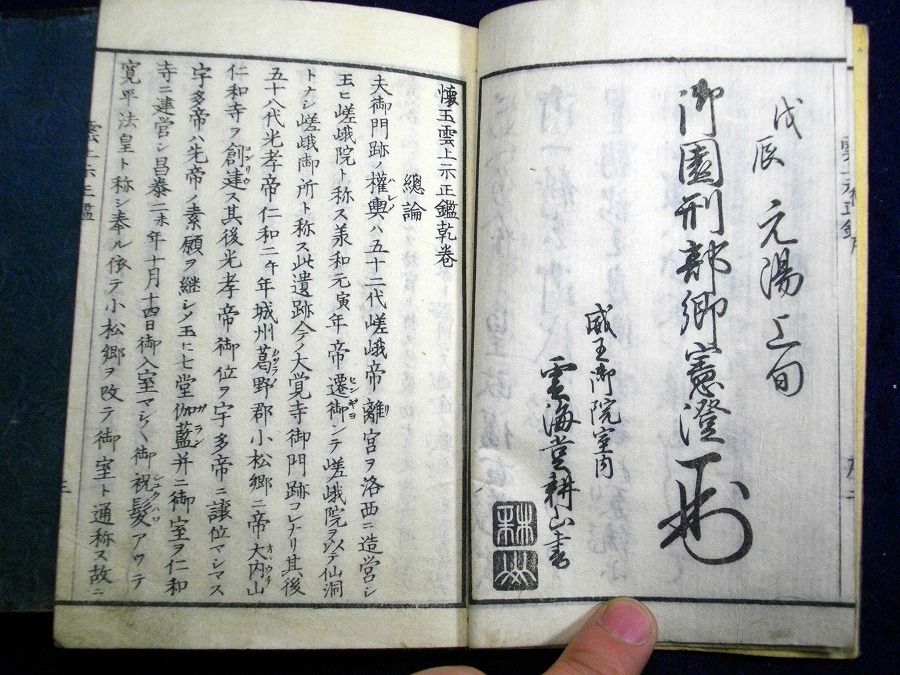 戊辰 元陽上旬
御園刑部卿憲澄
威王御院室内
雲海堂耕山書
懐玉雲上示正鑑乾巻
總論
夫御門跡ノ權輿ハ五十二代嵯峨帝離宮ヲ洛西ニ造営シ
玉ヒ嵯峨院ト称ス羕和元寅年帝遷御シテ嵯峨院ヲ以テ仙洞
トナシ嵯峨御所ト称ス此遺跡今ノ大覚寺御門跡コレナリ其後
五十八代光孝帝仁和二午年城州葛野郡小松郷ニ帝大内山
仁和寺ヲ創建ス其後光孝帝御位ヲ宇多帝ニ譲位マシマス
宇多帝ハ先帝ノ素願ヲ継シメ玉ヒ七堂伽藍并ニ御室ヲ仁和
寺ニ建営シ昌泰二未年十月十四日御入室マシ〱御祝髪アツテ
寛平法皇ト称シ奉ル依テ小松郷ヲ改テ御室ト通称ス故ニ
雲上示正鑑